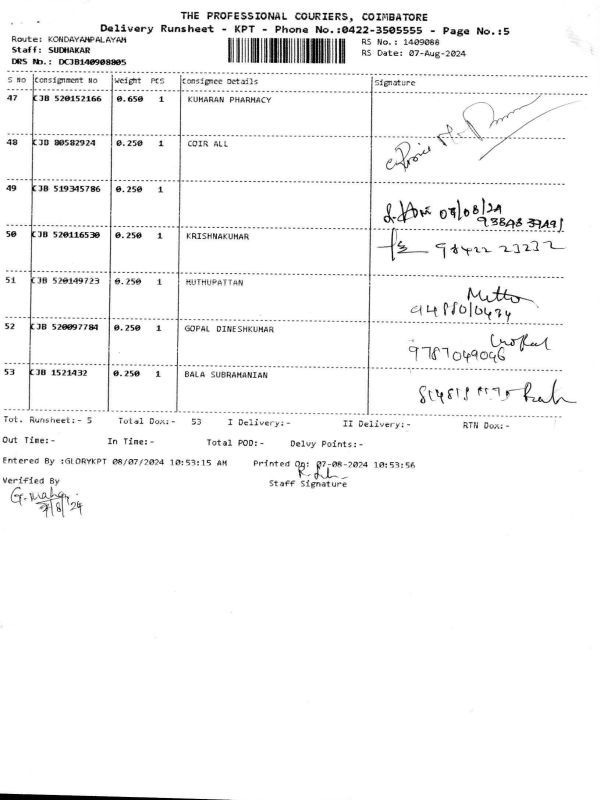 THE PROFESSIONAL COURIERS, COIMBATORE
Delivery Runsheet - KPT - Phone No.:0422-3505555 - Page No.:5
Route: KONDAYAMPALAYAM RS No.: 1409088
Staff: SUDHAKAR RS Date: 07-Aug-2024
DRS No.: DCJB140908805
S No Consignment No Weight PCS Consignee Details Signature
47 CJB 520152166 0.650 1 KUMARAN PHARMACY
48 CJB 80582924 0.250 1 COIR ALL
49 CJB 519345786 0.250 1
07/08/24
50 CJB 520116530 0.250 1 KRISHNAKUMAR 98422 23232
51 CJB 520149723 0.250 1 MUTHUPATTAN
52 CJB 520097784 0.250 1 GOPAL DINESHKUMAR
9787049046
53 CJB 1521432 0.250 1 BALA SUBRAMANIAN
Tot. Runsheet:- 5 Total Dox:- 53 I Delivery:- II Delivery:- RTN Dox:-
Out Time:- In Time:- Total POD:- Delvy Points:-
Entered By :GLORYKPT 08/07/2024 10:53:15 AM Printed On: 07-08-2024 10:53:56
Verified By Staff Signature
7/8/24